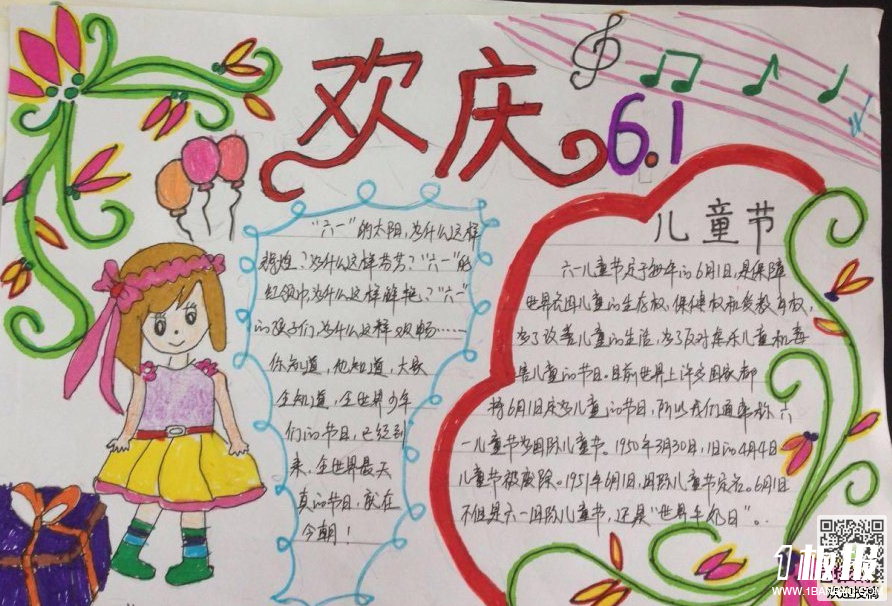 欢庆
6.1
"六一"的太阳,为什么这样
辉煌?为什么这样芬芳?"六一"的
红领巾,为什么这样鲜艳?"六一"
的孩子们,为什么这样欢畅……
你知道,他知道,大家
全知道,全世界少年
们的节日,已经到
来,全世界最天
真的节日,就在
今朝!
儿童节
六一儿童节定于每年的6月1日,是保障
世界各国儿童的生存权、保健权和受教育权,
为了改善儿童的生活,为了反对虐杀儿童和毒
害儿童的节日。目前世界上许多国家都
将6月1日定为儿童的节日,所以我们通常称六
一儿童节为国际儿童节。1950年3月30日,旧的4月4日
儿童节被废除。1951年6月1日,国际儿童节定名。6月1日
不但是六一国际儿童节,还是"世界牛奶日"。
1板报
WWW.1BANBAO.COM
欢迎投稿